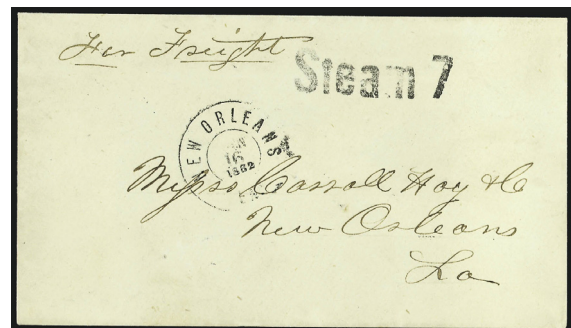 For Freight
Steam 7
NEW ORLEANS
16
1862
Messrs Carroll Hoy & Co
New Orleans
La